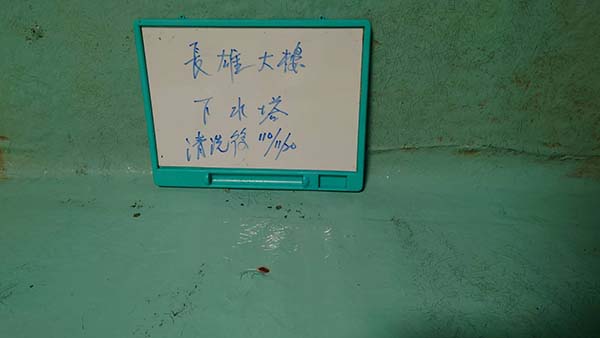 長雄大樓
下水塔
清洗後 110/11/30